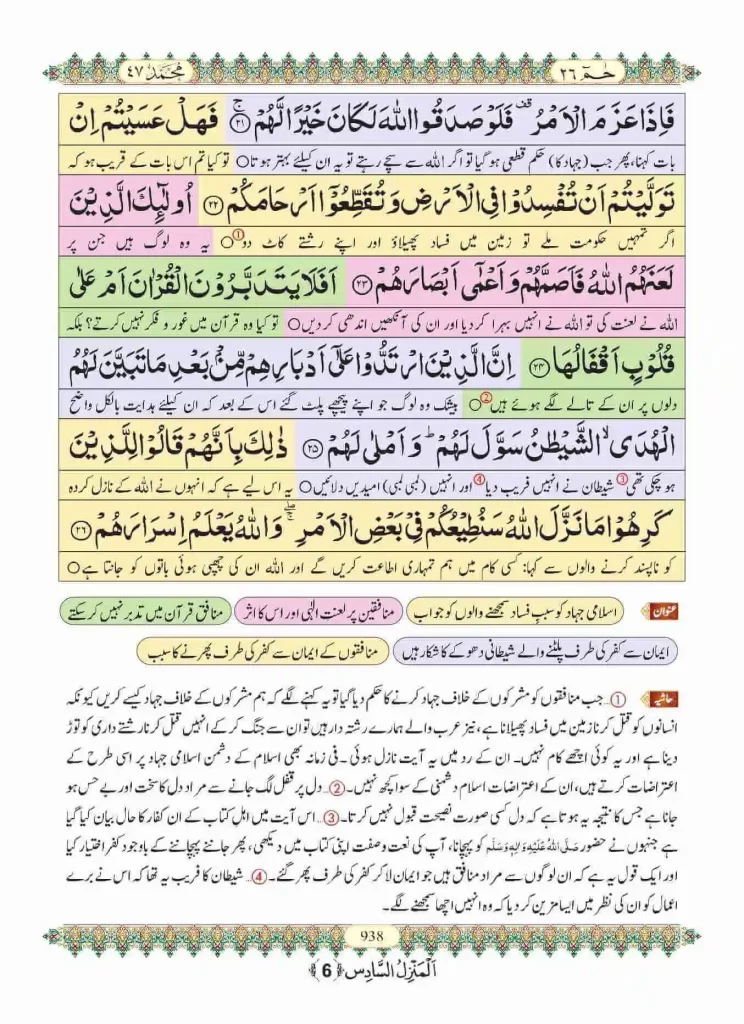 حٰمٓ ۲۶
مُحَمَّد ۴۷
فَاِذَا عَزَمَ الْاَمْرُ ۫ فَلَوْ صَدَقُوا اللّٰهَ لَكَانَ خَیْرًا لَّهُمْ ۚ۝۲۱ فَهَلْ عَسَیْتُمْ اِنْ
بات کہنا، پھر جب (جہاد کا) حکم قطعی ہوگیا تو اگر اللہ سے سچے رہتے تو یہ ان کیلئے بہتر ہوتا○ تو کیا تم اس بات کے قریب ہو کہ
تَوَلَّیْتُمْ اَنْ تُفْسِدُوْا فِی الْاَرْضِ وَ تُقَطِّعُوْۤا اَرْحَامَكُمْ ۝۲۲ اُولٰٓىِٕكَ الَّذِیْنَ
اگر تمہیں حکومت ملے تو زمین میں فساد پھیلاؤ اور اپنے رشتے کاٹ دو①○ یہ وہ لوگ ہیں جن پر
لَعَنَهُمُ اللّٰهُ فَاَصَمَّهُمْ وَ اَعْمٰۤى اَبْصَارَهُمْ ۝۲۳ اَفَلَا یَتَدَبَّرُوْنَ الْقُرْاٰنَ اَمْ عَلٰى
اللہ نے لعنت کی تو اللہ نے انہیں بہرا کردیا اور ان کی آنکھیں اندھی کردیں○ تو کیا وہ قرآن میں غور و فکر نہیں کرتے؟ بلکہ
قُلُوْبٍ اَقْفَالُهَا ۝۲۴ اِنَّ الَّذِیْنَ ارْتَدُّوْا عَلٰۤى اَدْبَارِهِمْ مِّنْۢ بَعْدِ مَا تَبَیَّنَ لَهُمُ
دلوں پر ان کے تالے لگے ہوئے ہیں②○ بیشک وہ لوگ جو اپنے پیچھے پلٹ گئے اس کے بعد کہ ان کیلئے ہدایت بالکل واضح
الْهُدَى ۙ الشَّیْطٰنُ سَوَّلَ لَهُمْ ؕ وَ اَمْلٰى لَهُمْ ۝۲۵ ذٰلِكَ بِاَنَّهُمْ قَالُوْا لِلَّذِیْنَ
ہوچکی تھی③ شیطان نے انہیں فریب دیا④ اور انہیں (لمبی لمبی) امیدیں دلائیں○ یہ اس لیے ہے کہ انہوں نے اللہ کے نازل کردہ
كَرِهُوْا مَا نَزَّلَ اللّٰهُ سَنُطِیْعُكُمْ فِیْ بَعْضِ الْاَمْرِ ۖۚ وَ اللّٰهُ یَعْلَمُ اِسْرَارَهُمْ ۝۲۶
کو ناپسند کرنے والوں سے کہا: کسی کام میں ہم تمہاری اطاعت کریں گے اور اللہ ان کی چھپی ہوئی باتوں کو جانتا ہے○
عنوان اسلامی جہاد کو سببِ فساد سمجھنے والوں کو جواب منافقین پر لعنتِ الٰہی اور اس کا اثر منافق قرآن میں تدبر نہیں کرسکتے
ایمان سے کفر کی طرف پلٹنے والے شیطانی دھوکے کا شکار ہیں منافقوں کے ایمان سے کفر کی طرف پھرنے کا سبب
حاشیہ ①... جب منافقوں کو مشرکوں کے خلاف جہاد کرنے کا حکم دیا گیا تو یہ کہنے لگے کہ ہم مشرکوں کے خلاف جہاد کیسے کریں کیونکہ
انسانوں کو قتل کرنا زمین میں فساد پھیلانا ہے، نیز عرب والے ہمارے رشتہ دار ہیں تو ان سے جنگ کرکے انہیں قتل کرنا رشتے داری کو توڑ
دینا ہے اور یہ کوئی اچھے کام نہیں۔ ان کے رد میں یہ آیت نازل ہوئی۔ فی زمانہ بھی اسلام کے دشمن اسلامی جہاد پر اسی طرح کے
اعتراضات کرتے ہیں، ان کے اعتراضات اسلام دشمنی کے سوا کچھ نہیں۔ ②... دل پر قفل لگ جانے سے مراد دل کا سخت اور بے حس ہو
جانا ہے جس کا نتیجہ یہ ہوتا ہے کہ دل کسی صورت نصیحت قبول نہیں کرتا۔ ③... اس آیت میں اہلِ کتاب کے ان کفار کا حال بیان کیا گیا
ہے جنہوں نے حضور صَلَّی اللہُ عَلَیْہِ وَاٰلِہٖ وَسَلَّم کو پہچانا، آپ کی نعت و صفت اپنی کتاب میں دیکھی، پھر جاننے پہچاننے کے باوجود کفر اختیار کیا
اور ایک قول یہ ہے کہ ان لوگوں سے مراد منافق ہیں جو ایمان لا کر کفر کی طرف پھر گئے۔ ④... شیطان کا فریب یہ تھا کہ اس نے برے
اعمال کو ان کی نظر میں ایسا مزین کردیا کہ وہ انہیں اچھا سمجھنے لگے۔
938
اَلْمَنْزِلُ السَّادِسُ ﴿6﴾